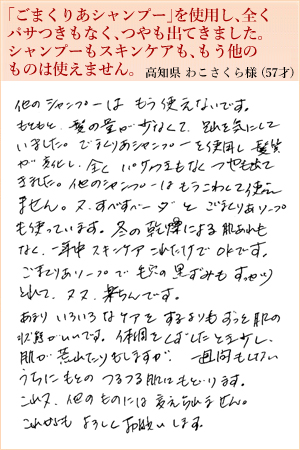 「ごまくりあシャンプー」を使用し、全く
パサつきもなく、つやも出てきました。
シャンプーもスキンケアも、もう他の
ものは使えません。 高知県 わこさくら様（57才）
他のシャンプーは もう使えないです。
もともと、髪の量が少なくて、気にして
いました。ごまくりあシャンプーを使用し 髪質
が変化し、全く パサつきもなく つやも出て
きました。他のシャンプーはもうこわくて使え
ません。又、すべすべ と ごまくりあソープ
も使っています。冬の乾燥による肌あれも
なく、一年中 スキンケア これだけで OKです。
ごまくりあソープで 毛穴の黒ずみも すっかり
とれて、スベスベ 楽ちんです。
あまり いろいろなケアを するよりも ずっと 肌の
状態がいいです。体調をくずしたとき少し、
肌が 荒れたりもしますが、一週間もしない
うちに もとの つるつる肌にもどります。
これは、他のものには 変えられません。
これからも よろしくお願いします。